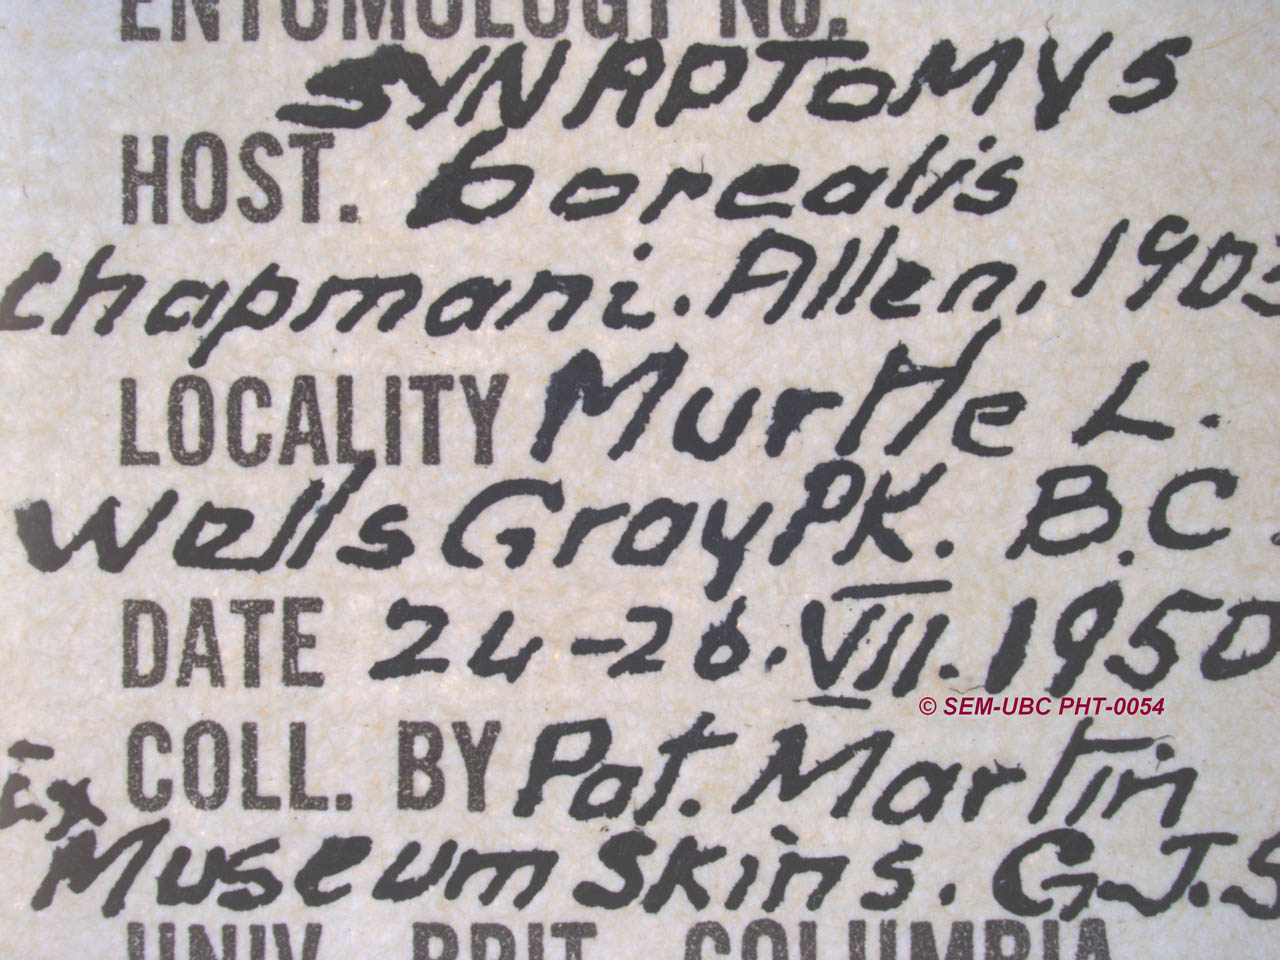 ENTOMOLOGY NO.
SYNAPTOMYS
HOST. borealis
chapmani. Allen, 1903
LOCALITY Murtle L.
Wells Gray PK. B.C.
DATE 24-26.VII.1950
© SEM-UBC PHT-0054
COLL. BY Pat. Martin
Ex Museum Skins. G.J.S
UNIV. BRIT. COLUMBIA